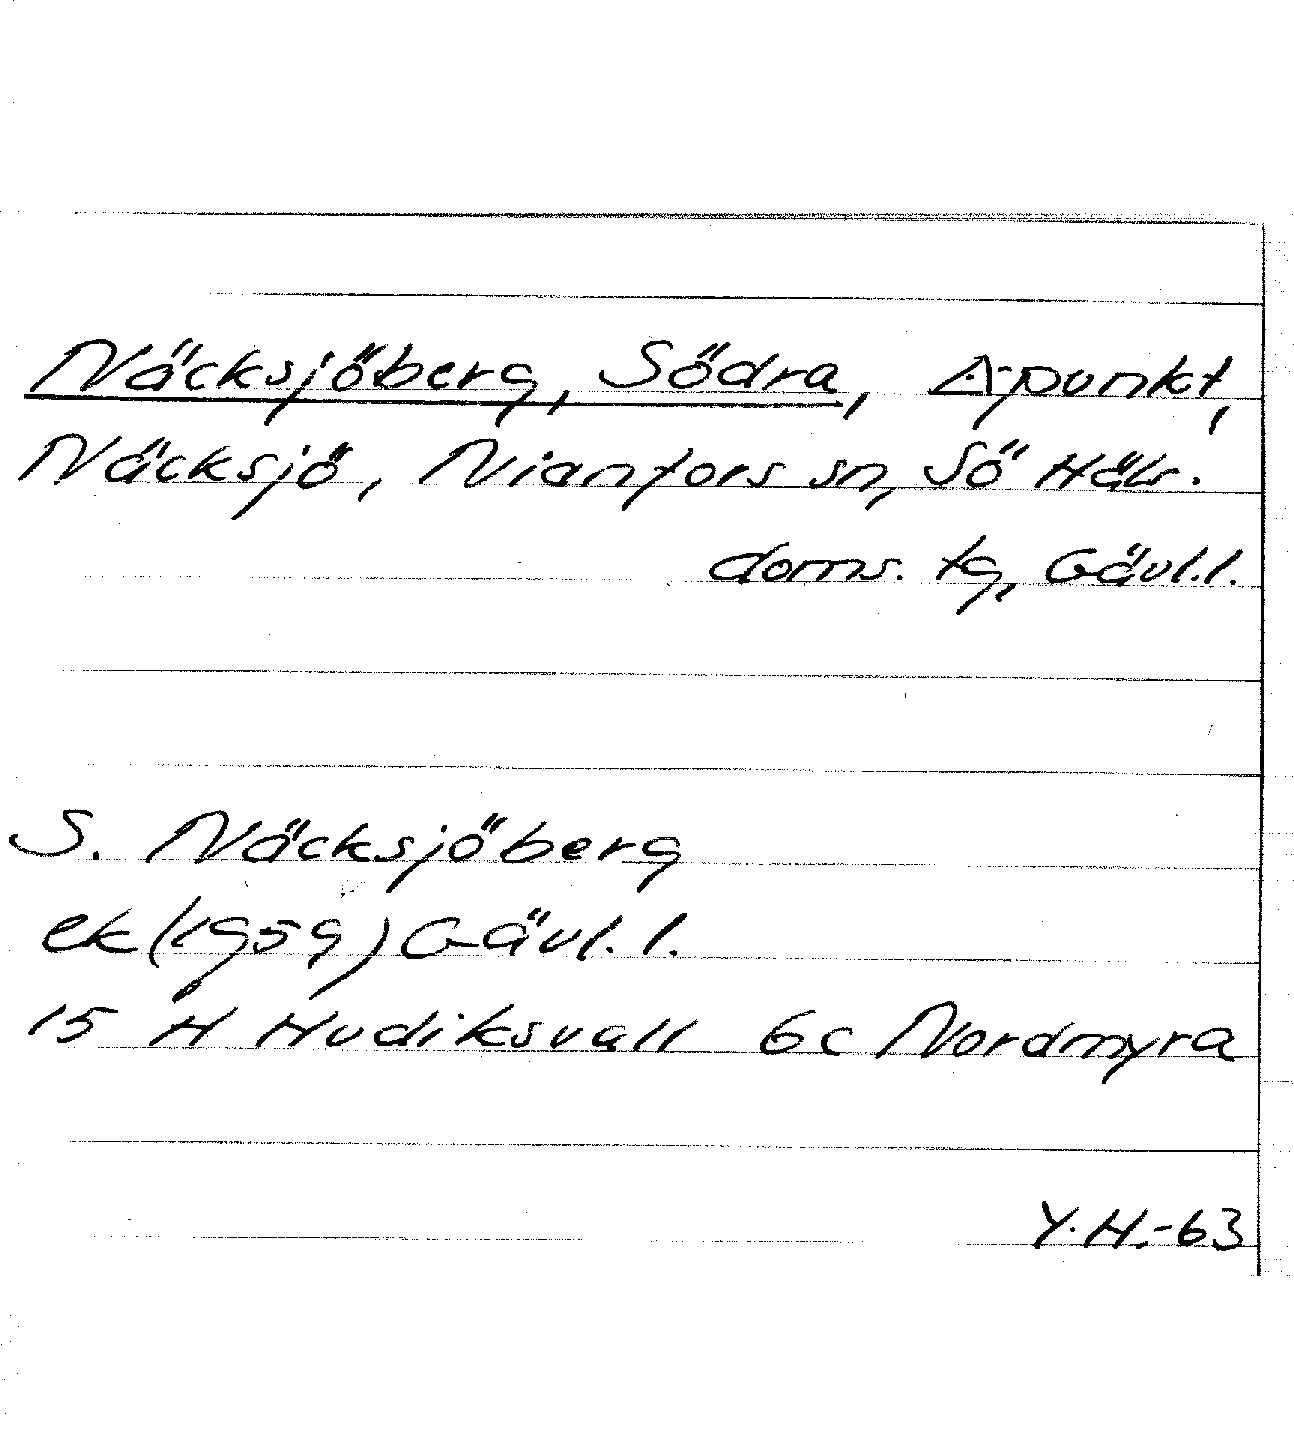 Näcksjöberg, Södra, Δ-punkt,
Näcksjö, Nianfors sn, Sö Häls.
doms. tg, Gävl.l.
S. Näcksjöberg
ek(1959)Gävl.l.
15 H Hudiksvall 6c Nordmyra
Y.H.-63